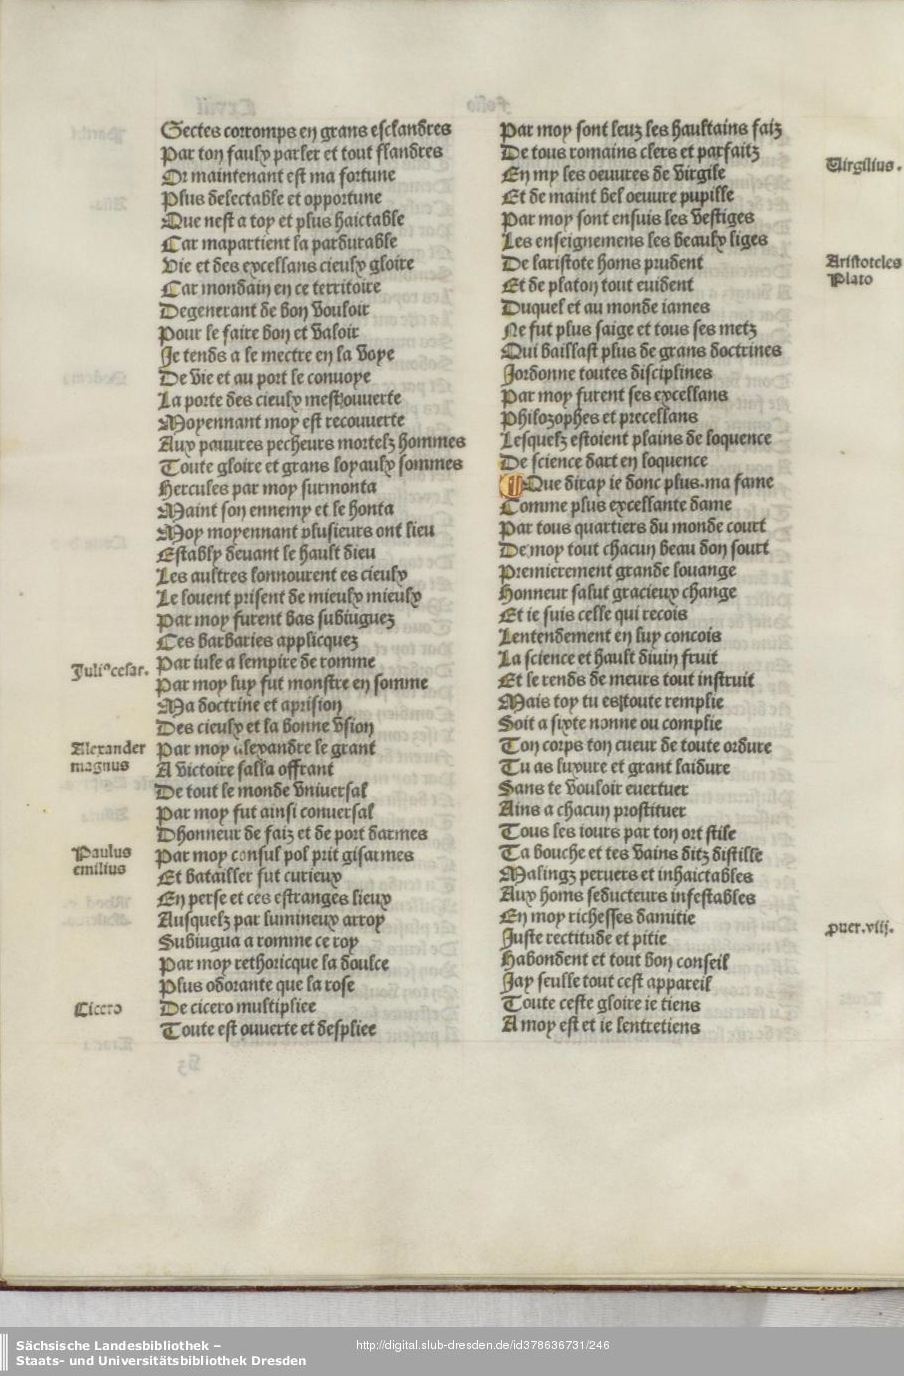 Sectes corromps en grans esclandres
Par ton faulx parler et tout flandres
Or maintenant est ma fortune
Plus delectable et opportune
Que nest a toy et plus haictable
Car mapartient la pardurable
Vie et des excellans cieulx gloire
Car mondain en ce territoire
Degenerant de bon vouloir
Pour le faire bon et valoir
Je tends a le mectre en la voye
De vie et au port le convoye
La porte des cieulx mest ouverte
Moyennant moy est recouverte
Aux pauvres pecheurs mortelz hommes
Toute gloire et grans loyaulx sommes
Hercules par moy surmonta
Maint son ennemy et le honta
Moy moyennant plusieurs ont lieu
Establx devant le hault dieu
Les aultres lonnourent es cieulx
Le louent prisent de mieulx mieulx
Par moy furent bas subiuguez
Ces barbaries applicquez
Juliꝰ cesar.
Par iule a lempire de romme
Par moy luy fut monstre en somme
Ma doctrine et aprision
Des cieulx et la bonne vsion
Alexander magnus
Par moy alexandre le grant
A victoire salla offrant
De tout le monde vniversal
Par moy fut ainsi conversal
Dhonneur de faiz et de port darmes
Paulus emilius
Par moy consul pol prit gisarmes
Et batailler fut curieux
En perse et ces estranges lieux
Ausquelz par lumineux arroy
Subiugua a romme ce roy
Par moy rethoricque la doulce
Plus odorante que la rose
Cicero
De cicero multipliee
Toute est ouverte et despliee
Par moy sont leuz les haultains faiz
De tous romains clers et parfaitz
Virgilius.
En my les oeuvres de virgile
Et de maint bel oeuvre pupille
Par moy sont ensuis les vestiges
Les enseignemens les beaulx liges
Aristoteles
De laristote homs prudent
Plato
Et de platon tout evident
Duquel et au monde iames
Ne fut plus saige et tous ses metz
Qui baillast plus de grans doctrines
Jordonne toutes disciplines
Par moy furent ses excellans
Philozophes et precellans
Lesquelz estoient plains de loquence
De science dart en loquence
Que diray ie donc plus.ma fame
Comme plus excellante dame
Par tous quartiers du monde court
De moy tout chacun beau don sourt
Premierement grande louange
Honneur salut gracieux change
Et ie suis celle qui recois
Lentendement en luy concois
La science et hault divin fruit
Et le rends de meurs tout instruit
Mais toy tu es toute remplie
Soit a sixte nonne ou complie
Ton corps ton cueur de toute ordure
Tu as luxure et grant laidure
Sans te vouloir evertuer
Ains a chacun prostituer
Tous les iours par ton ort stile
Ta bouche et tes vains ditz distille
Malingz pervers et inhaictables
Aux homs seducteurs infestables
En moy richesses damitie
puer.viij.
Juste rectitude et pitie
Habondent et tout bon conseil
Jay seulle tout cest appareil
Toute ceste gloire ie tiens
A moy est et ie lentretiens
Sächsische Landesbibliothek –
Staats- und Universitätsbibliothek Dresden
http://digital.slub-dresden.de/id378636731/246